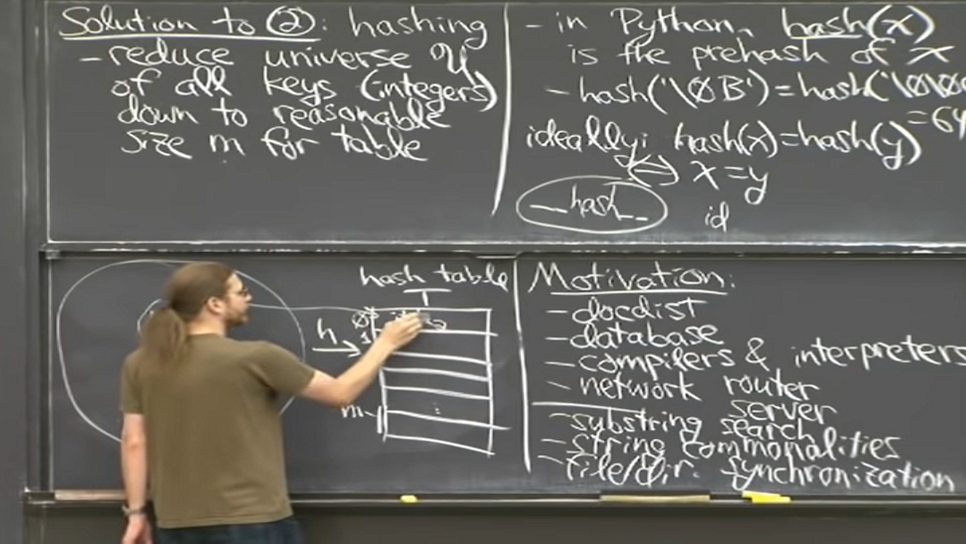 Solution to ②: hashing
- reduce universe U
of all keys (integers)
down to reasonable
size m for table
- in Python, hash(x)
is the prehash of x
- hash('\0B') = hash('\0\0
= 64
ideally: hash(x) = hash(y)
⇔ x = y
__hash__
id
hash table
T
h
0
1
m-
⋮
Motivation:
- docdist
- database
- compilers & interpreters
- network router
server
- substring search
- string commonalities
- file/dir. synchronization